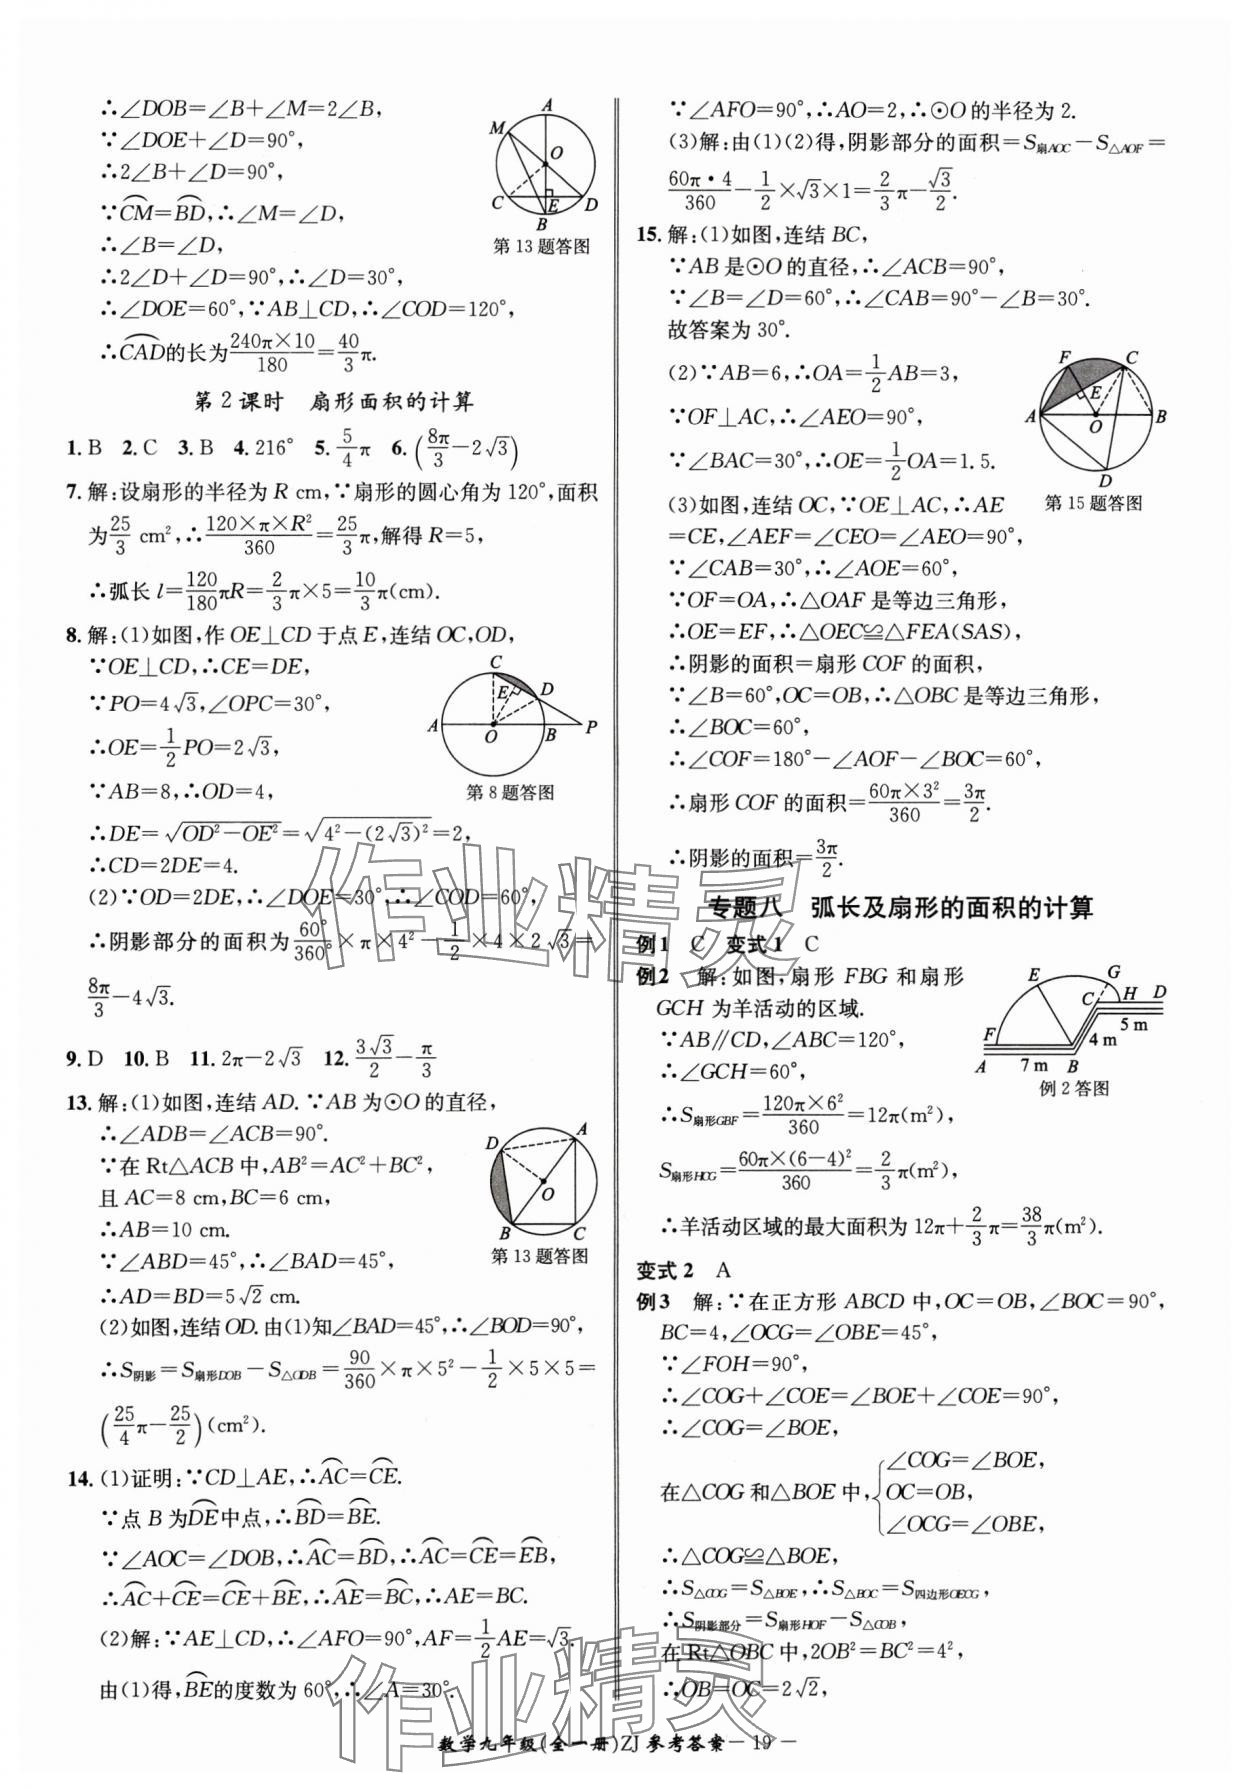 ∴∠DOB=∠B+∠M=2∠B,
∵∠DOE+∠D=90°,
∴2∠B+∠D=90°,
∵⌒CM=⌒BD,∴∠M=∠D,
∴∠B=∠D,
∴2∠D+∠D=90°,∴∠D=30°,
∴∠DOE=60°,∵AB⊥CD,∴∠COD=120°,
∴⌒CAD的长为240π×10/180=40/3π.
A
M
O
C
E
D
B
第13题答图
第2课时 扇形面积的计算
1. B 2. C 3. B 4. 216° 5. 5/4π 6. (8π/3-2√3)
7. 解:设扇形的半径为R cm,∵扇形的圆心角为120°,面积
为25/3 cm²,∴120×π×R²/360=25/3π,解得R=5,
∴弧长l=120/180πR=2/3π×5=10/3π(cm).
8. 解:(1)如图,作OE⊥CD于点E,连结OC,OD,
∵OE⊥CD,∴CE=DE,
∵PO=4√3,∠OPC=30°,
∴OE=1/2PO=2√3,
∵AB=8,∴OD=4,
∴DE=√(OD²-OE²)=√(4²-(2√3)²)=2,
∴CD=2DE=4.
C
E
D
A
O
B
P
第8题答图
(2)∵OD=2DE,∴∠DOE=30°,∴∠COD=60°,
∴阴影部分的面积为60°/360°×π×4²-1/2×4×2√3=
8π/3-4√3.
9. D 10. B 11. 2π-2√3 12. 3√3/2-π/3
13. 解:(1)如图,连结AD.∵AB为⊙O的直径,
∴∠ADB=∠ACB=90°.
∵在Rt△ACB中,AB²=AC²+BC²,
且AC=8 cm,BC=6 cm,
∴AB=10 cm.
∵∠ABD=45°,∴∠BAD=45°,
∴AD=BD=5√2 cm.
A
D
O
B
C
第13题答图
(2)如图,连结OD.由(1)知∠BAD=45°,∴∠BOD=90°,
∴S阴影=S扇形DOB-S△ODB=90/360×π×5²-1/2×5×5=
(25/4π-25/2)(cm²).
14. (1)证明:∵CD⊥AE,∴⌒AC=⌒CE.
∵点B为⌒DE中点,∴⌒BD=⌒BE.
∵∠AOC=∠DOB,∴⌒AC=⌒BD,∴⌒AC=⌒CE=⌒EB,
∴⌒AC+⌒CE=⌒CE+⌒BE,∴⌒AE=⌒BC,∴AE=BC.
(2)解:∵AE⊥CD,∴∠AFO=90°,AF=1/2AE=√3.
由(1)得,⌒BE的度数为60°,∴∠A=30°.
∵∠AFO=90°,∴AO=2,∴⊙O的半径为2.
(3)解:由(1)(2)得,阴影部分的面积=S扇AOC-S△AOF=
60π·4/360-1/2×√3×1=2/3π-√3/2.
15. 解:(1)如图,连结BC,
∵AB是⊙O的直径,∴∠ACB=90°,
∵∠B=∠D=60°,∴∠CAB=90°-∠B=30°.
故答案为30°.
(2)∵AB=6,∴OA=1/2AB=3,
∵OF⊥AC,∴∠AEO=90°,
∵∠BAC=30°,∴OE=1/2OA=1.5.
F
C
E
A
O
B
D
第15题答图
(3)如图,连结OC,∵OE⊥AC,∴AE
=CE,∠AEF=∠CEO=∠AEO=90°,
∵∠CAB=30°,∴∠AOE=60°,
∵OF=OA,∴△OAF是等边三角形,
∴OE=EF,∴△OEC≌△FEA(SAS),
∴阴影的面积=扇形COF的面积,
∵∠B=60°,OC=OB,∴△OBC是等边三角形,
∴∠BOC=60°,
∴∠COF=180°-∠AOF-∠BOC=60°,
∴扇形COF的面积=60π×3²/360=3π/2.
∴阴影的面积=3π/2.
专题八 弧长及扇形的面积的计算
例1 C 变式1 C
例2 解:如图,扇形FBG和扇形
GCH为羊活动的区域.
∵AB∥CD,∠ABC=120°,
∴∠GCH=60°,
∴S扇形GBF=120π×6²/360=12π(m²),
S扇形HCG=60π×(6-4)²/360=2/3π(m²),
∴羊活动区域的最大面积为12π+2/3π=38/3π(m²).
E
G
C
H
D
5 m
F
4 m
A
7 m
B
例2答图
变式2 A
例3 解:∵在正方形ABCD中,OC=OB,∠BOC=90°,
BC=4,∠OCG=∠OBE=45°,
∵∠FOH=90°,
∴∠COG+∠COE=∠BOE+∠COE=90°,
∴∠COG=∠BOE,
在△COG和△BOE中,{∠COG=∠BOE,
OC=OB,
∠OCG=∠OBE,
∴△COG≌△BOE,
∴S△COG=S△BOE,∴S△BOC=S四边形OECG,
∴S阴影部分=S扇形HOF-S△COB,
在Rt△OBC中,2OB²=BC²=4²,
∴OB=OC=2√2,
作业精灵
作业精灵
数学九年级(全一册)ZJ 参考答案— 19 —